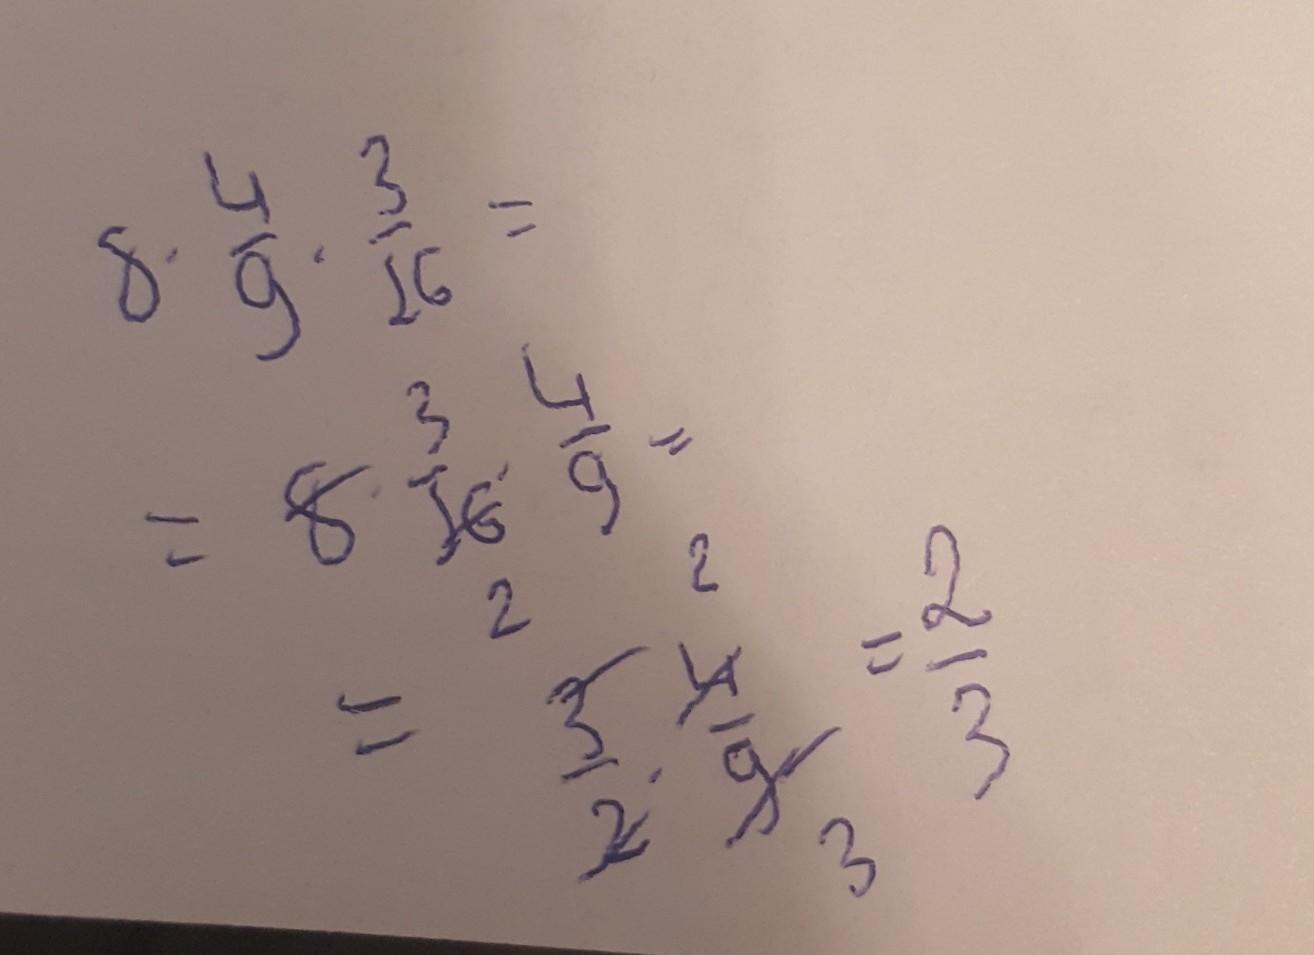 8 · 4/9 · 3/16 =
= 8 · 3/16 · 4/9 =
2
= 3/2 · 4/9 = 2/3
2 3